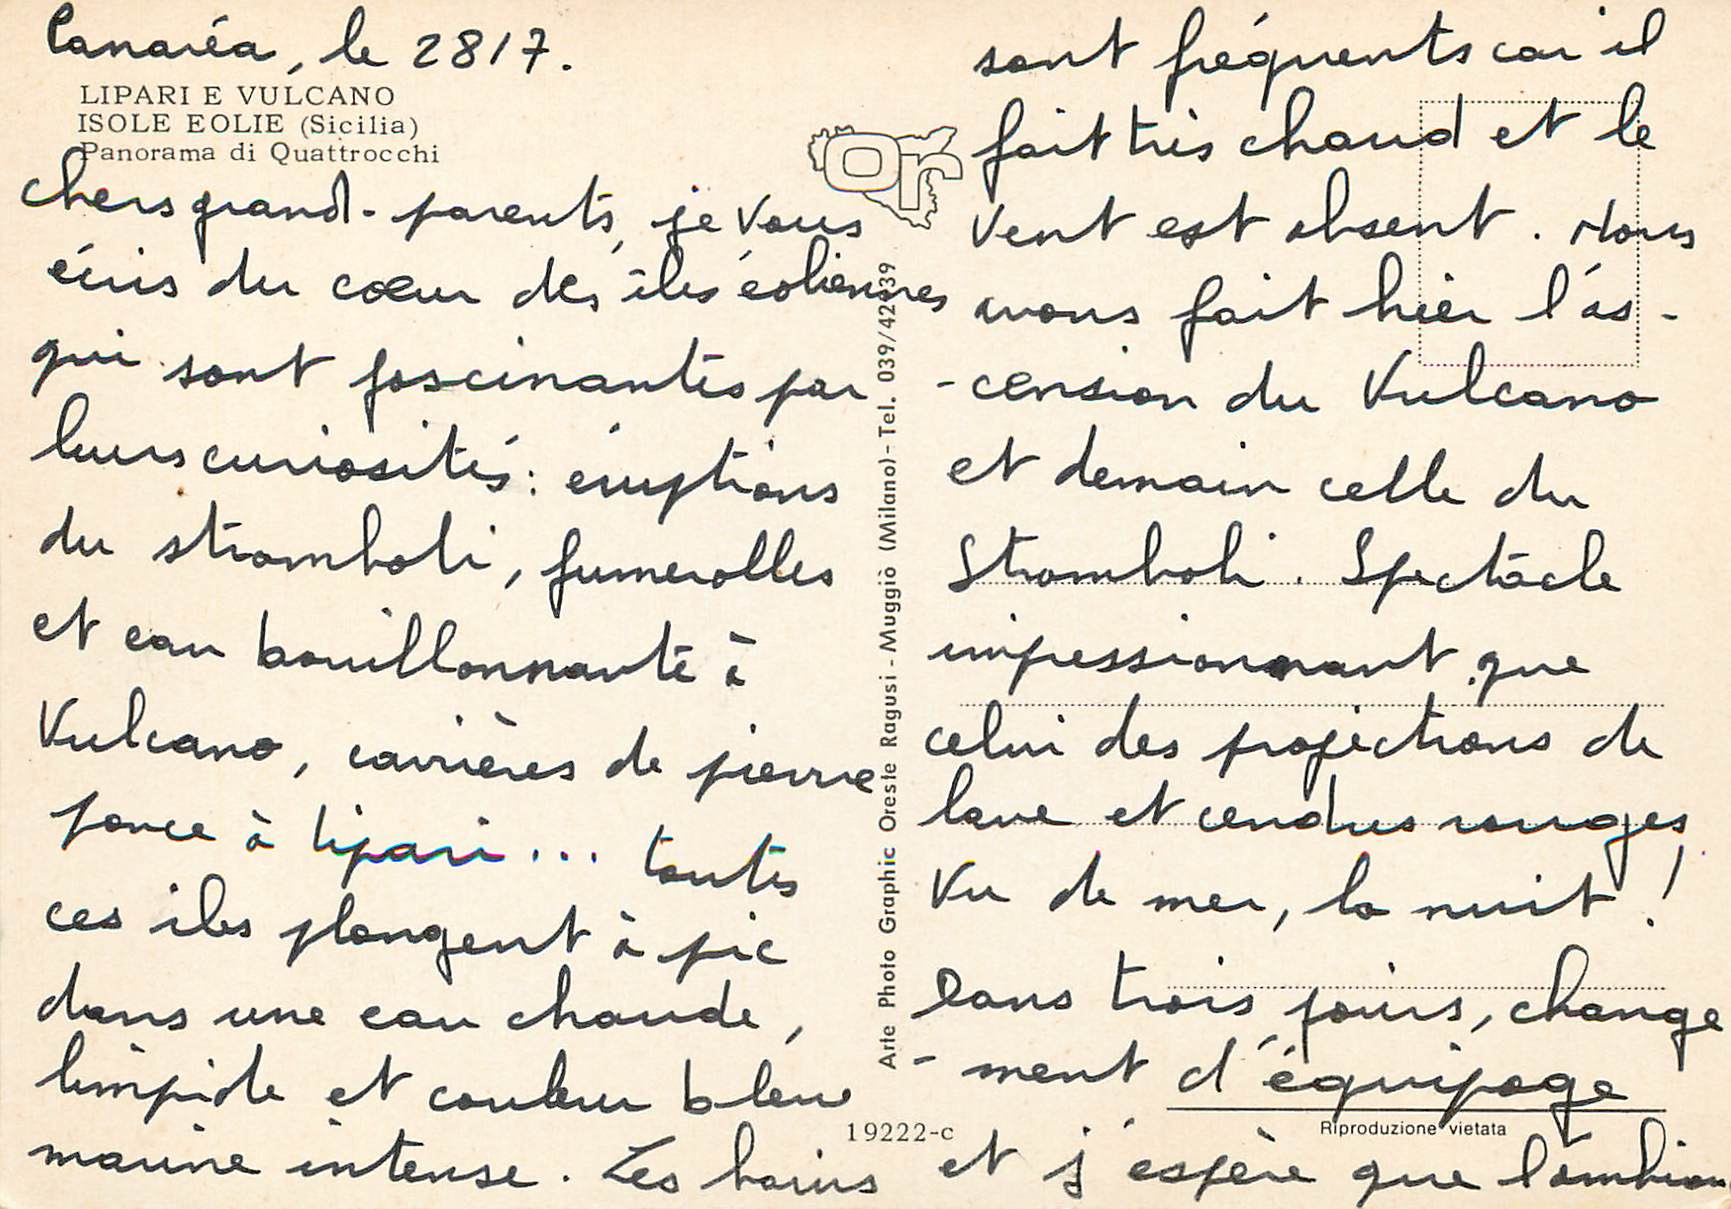 Panaréa, le 28/7.
LIPARI E VULCANO
ISOLE EOLIE (Sicilia)
Panorama di Quattrocchi
chers grand-parents, je vous
écris du cœur des îles éoliennes
qui sont fascinantes par
leurs curiosités : éruptions
du stromboli, fumerolles
et eau bouillonnante à
Vulcano, carrières de pierre
ponce à lipari... toutes
ces iles plongent à pic
dans une eau chaude,
limpide et couleur bleue
marine intense. Les bains
or
sont fréquents car il
fait très chaud et le
vent est absent. Nous
avons fait hier l'as-
-cension du Vulcano
et demain celle du
Stromboli. Spectacle
impressionnant que
celui des projections de
lave et cendres rouges,
vu de mer, la nuit !
Dans trois jours, change
-ment d'équipage
et j'espère que l'ambian
Arte Photo Graphic Oreste Ragusi - Muggiò (Milano) - Tel. 039/42939
19222-c
Riproduzione vietata